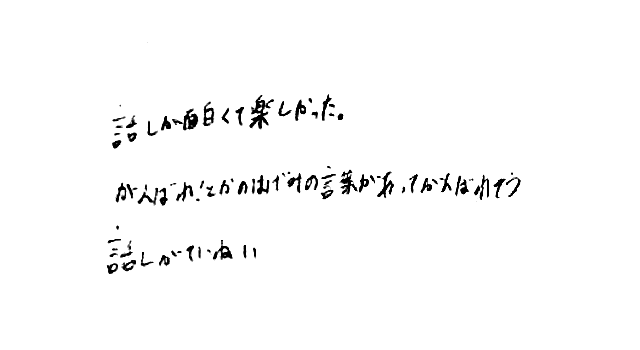 話しが面白くて楽しかった。
がんばれ!とかのはげみの言葉があってがんばれそう
話しがていねい